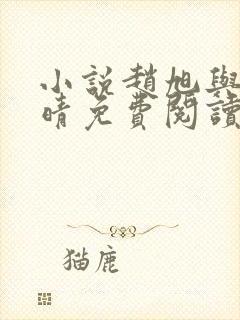 小説趙旭與
晴免費閱讀
猫鹿